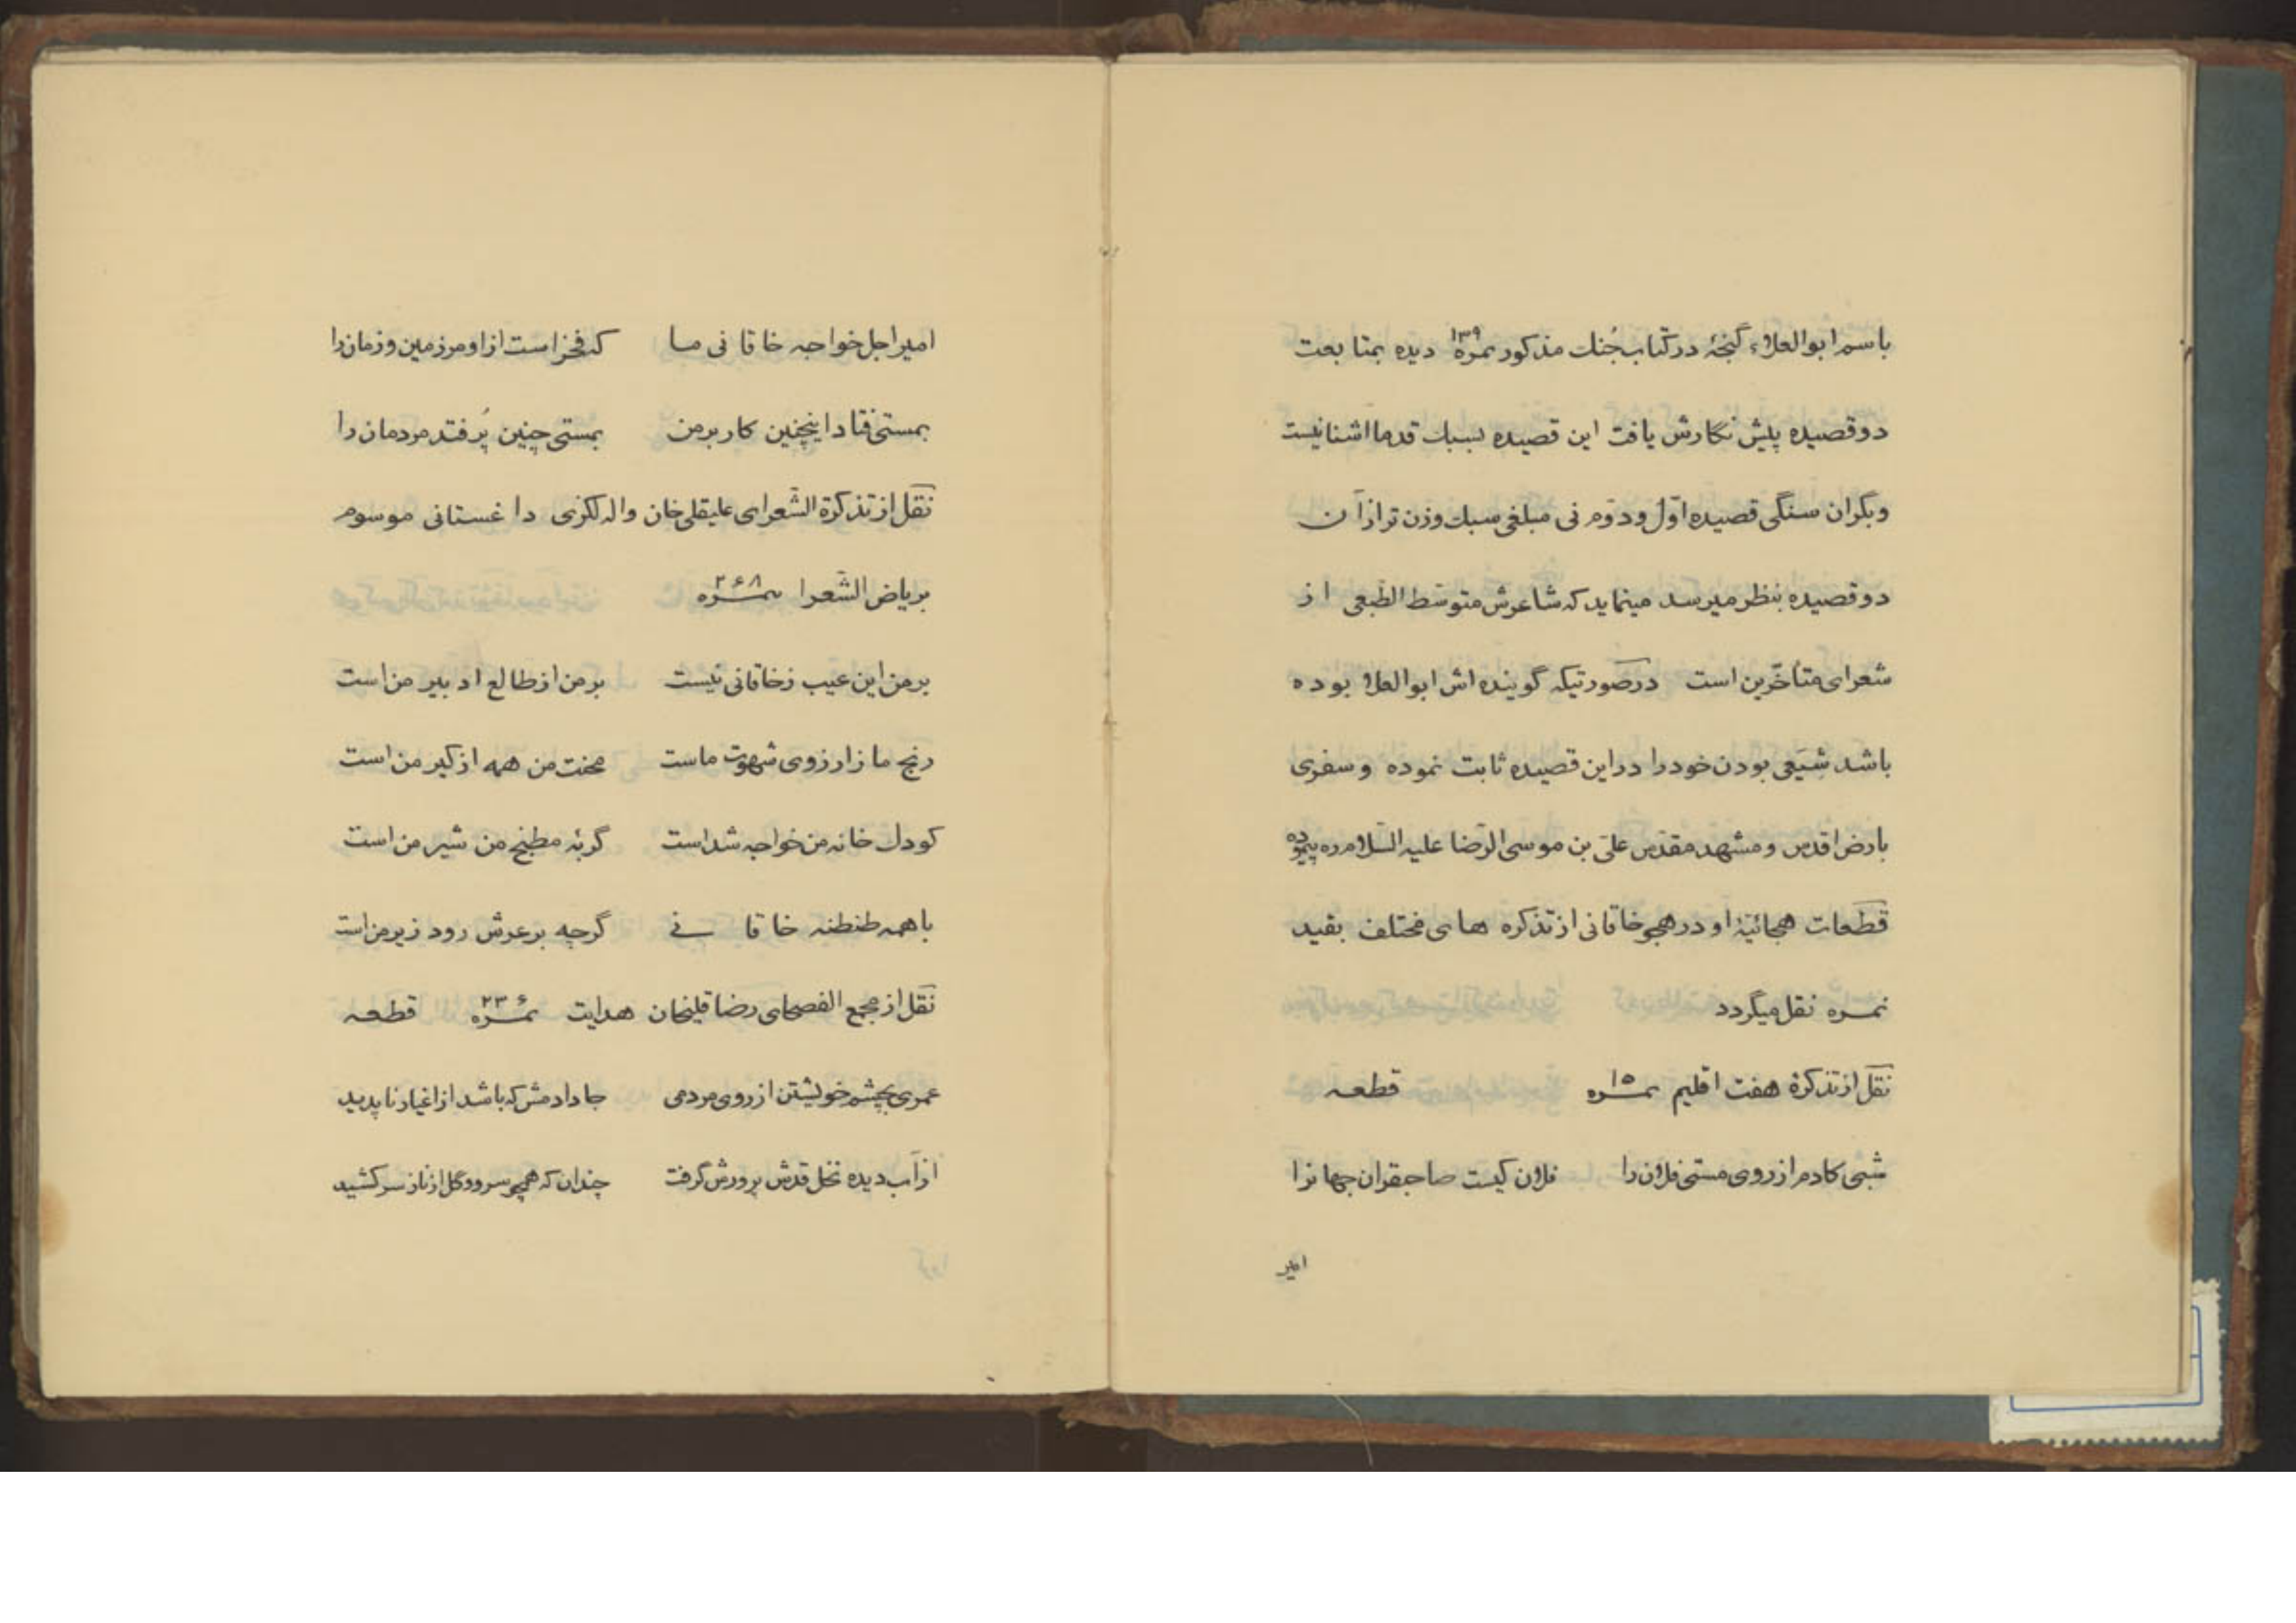 باسم ابوالعلاء گنجهٔ در کتاب جُنك مذكور نمره ۱۳۹ دیده بمتابعت
دو قصیده پیش نگارش یافت این قصیده بسبك قدما اشنا نیست
و بگران سنگی قصیده اوّل و دوّم نی مبلغی سبك وزن تر از آن
دو قصیده بنظر میرسد مینماید که شاعرش متوسّط الطّبعی از
شعرای متأخّرین است در صورتیکه گوینده اش ابوالعلا بوده
باشد شیَعی بودن خود را در این قصیده ثابت نموده و سفری
بارض اقدس و مشهد مقدّس علیّ بن موسی الرّضا علیه السّلام ره پیموده
قطعات هجائیّهٔ او در هجو خاقانی از تذکره های مختلف بقید
نمره نقل میگردد
نقل از تذکرهٔ هفت اقلیم نمره ۱۵ قطعه
شبی کادم از روی مستی فلان را فلان کیست صاحبقران جهانرا
امیر
امیر اجل خواجه خاقانی ما که فخر است از او مر زمین و زمانرا
بمستی فتاد اینچنین کار بر من بمستی چنین پُر فتد مردمان را
نقل از تذکرة الشّعرای علیقلی خان واله لکزی داغستانی موسوم
بریاض الشّعرا نمره ۲۶۸
بر من این عیب ز خاقانی نیست بر من از طالع ادبیر من است
رنج ما ز ارزوی شهوت ماست محنت من همه از کیر من است
کودك خانه من خواجه شد است گربهٔ مطبخ من شیر من است
با همه طنطنه خاقانی گرچه بر عرش رود زیر من است
نقل از مجمع الفصحای رضا قلیخان هدایت نمره ۲۳۶ قطعه
عمری بچشم خویشتن از روی مردمی جا دادمش که باشد از اغیار ناپدید
از آب دیده نخل قدش پرورش گرفت چندان که همچو سرو و گل از ناز سر کشید